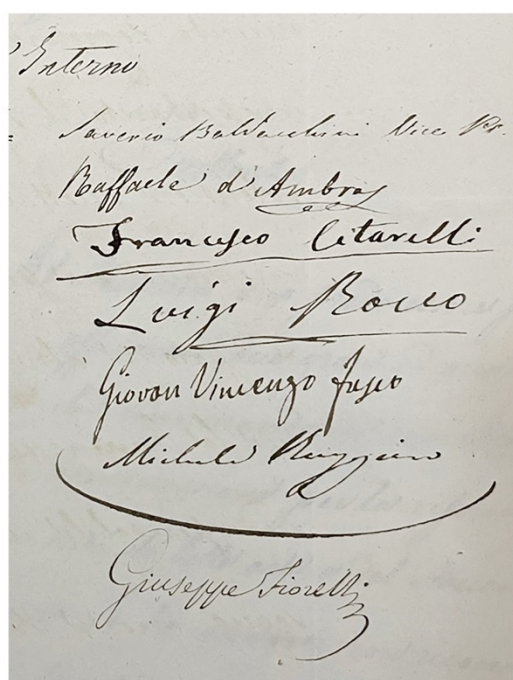 Interno
Saverio Baldacchini Vice Pr.
Raffaele d'Ambra
Francesco Citarelli
Luigi Rocco
Giovan Vincenzo Fusco
Michele Ruggiero
Giuseppe Fiorelli